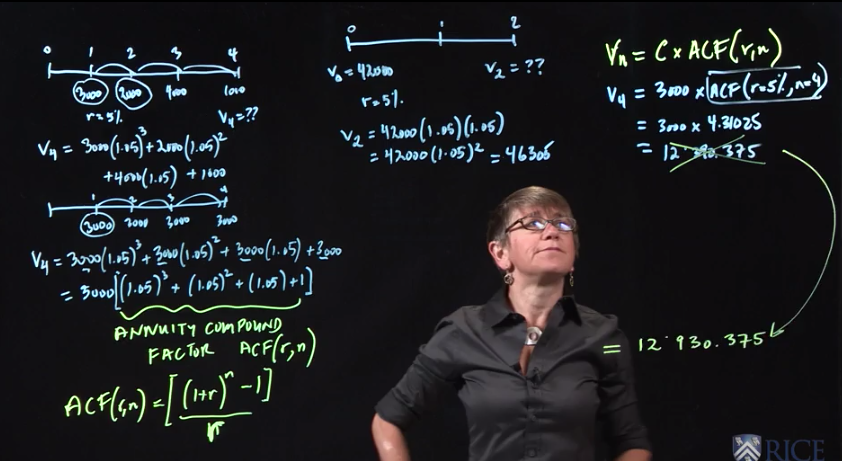 0 1 2 3 4
3000 2000 4000 1000
r = 5% V4 = ??
V4 = 3000(1.05)^3 + 2000(1.05)^2
+ 4000(1.05) + 1000
1 2 3 4
3000 3000 3000 3000
V4 = 3000(1.05)^3 + 3000(1.05)^2 + 3000(1.05) + 3000
= 3000[(1.05)^3 + (1.05)^2 + (1.05) + 1]
ANNUITY COMPOUND
FACTOR ACF(r,n)
ACF(r,n) = [(1+r)^n - 1]
r
0 1 2
V0 = 42000 V2 = ??
r = 5%
V2 = 42000(1.05)(1.05)
= 42000(1.05)^2 = 46305
Vn = C × ACF(r,n)
V4 = 3000 × ACF(r=5%, n=4)
= 3000 × 4.31025
= 12
.375
= 12'930.375
RICE